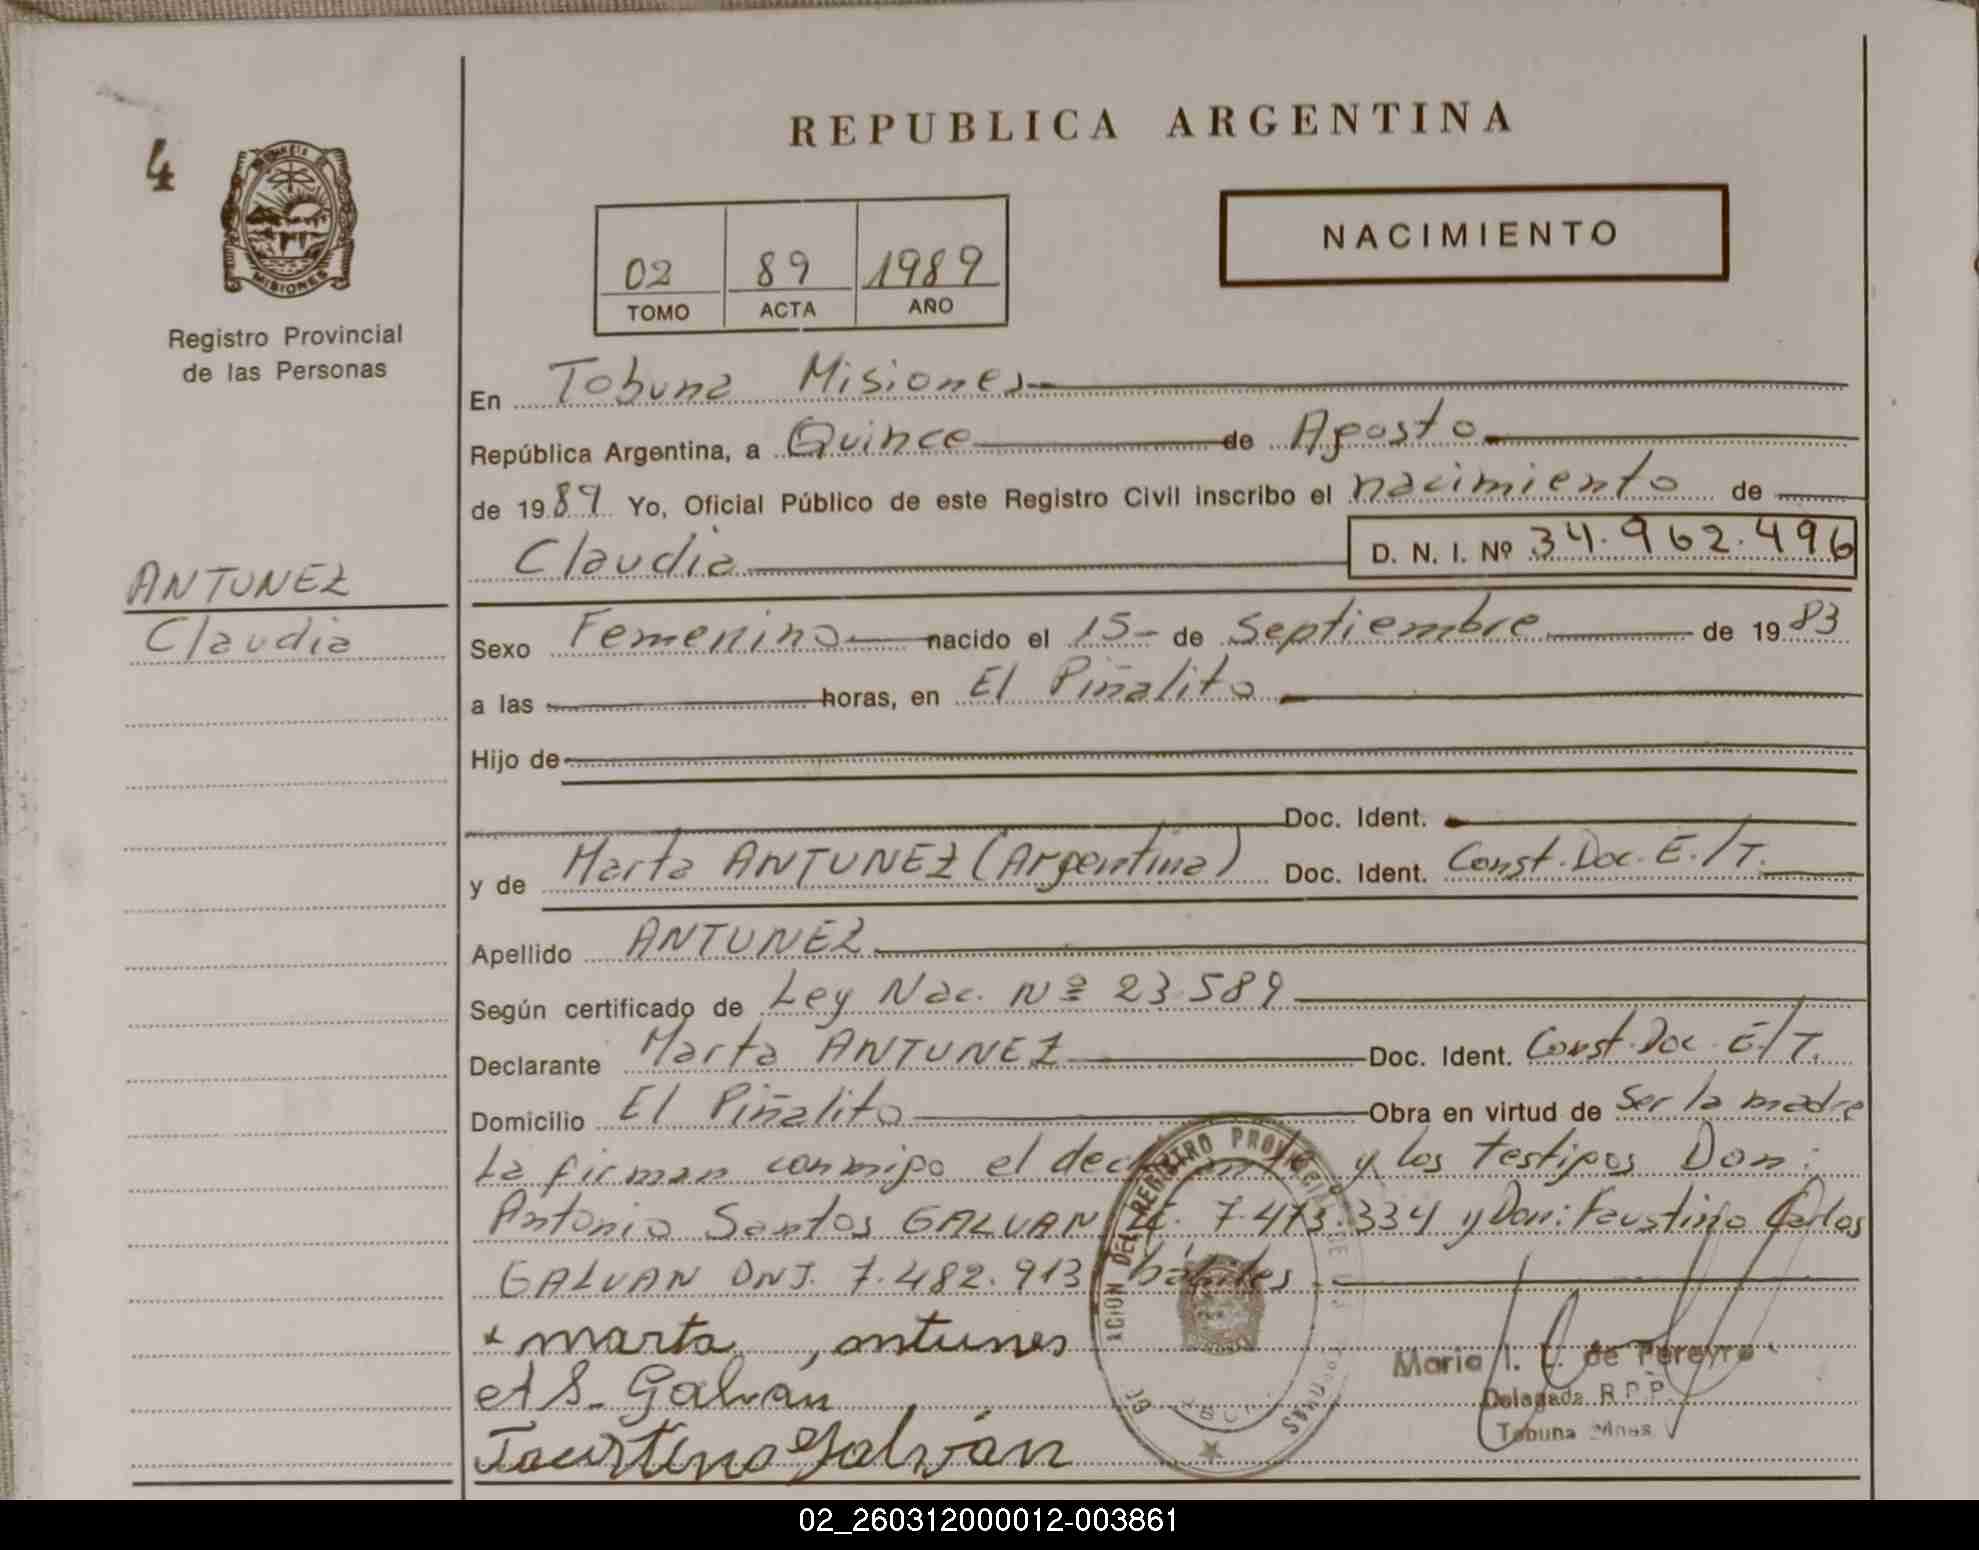 REPUBLICA ARGENTINA
4
MISIONES
Registro Provincial
de las Personas
02 89 1989
TOMO ACTA AÑO
NACIMIENTO
En Tobuna Misiones
República Argentina, a Quince de Agosto
de 1989 Yo, Oficial Público de este Registro Civil inscribo el nacimiento de
Claudia D. N. I. Nº 34.962.496
ANTUNEZ
Claudia
Sexo Femenino nacido el 15- de Septiembre de 1983
a las horas, en El Piñalito
Hijo de
Doc. Ident.
y de Marta ANTUNEZ (Argentina) Doc. Ident. Const. Doc. E./T.
Apellido ANTUNEZ
Según certificado de Ley Nac. Nº 23.589
Declarante Marta ANTUNEZ Doc. Ident. Const. Doc. E/T.
Domicilio El Piñalito Obra en virtud de Ser la madre
La firman conmigo el declarante y los testigos Don:
Antonio Santos GALVAN 7.473.334 y Don: Faustino Carlos
GALVAN DNI. 7.482.913 hábiles
marta, antunes
A S. Galván
Faustino Galván
DEL REGISTRO PROVINCIAL DE LAS PERSONAS
Maria I. de Pereyra
Delegada R.P.P.
Tobuna Mnes.
02_260312000012-003861